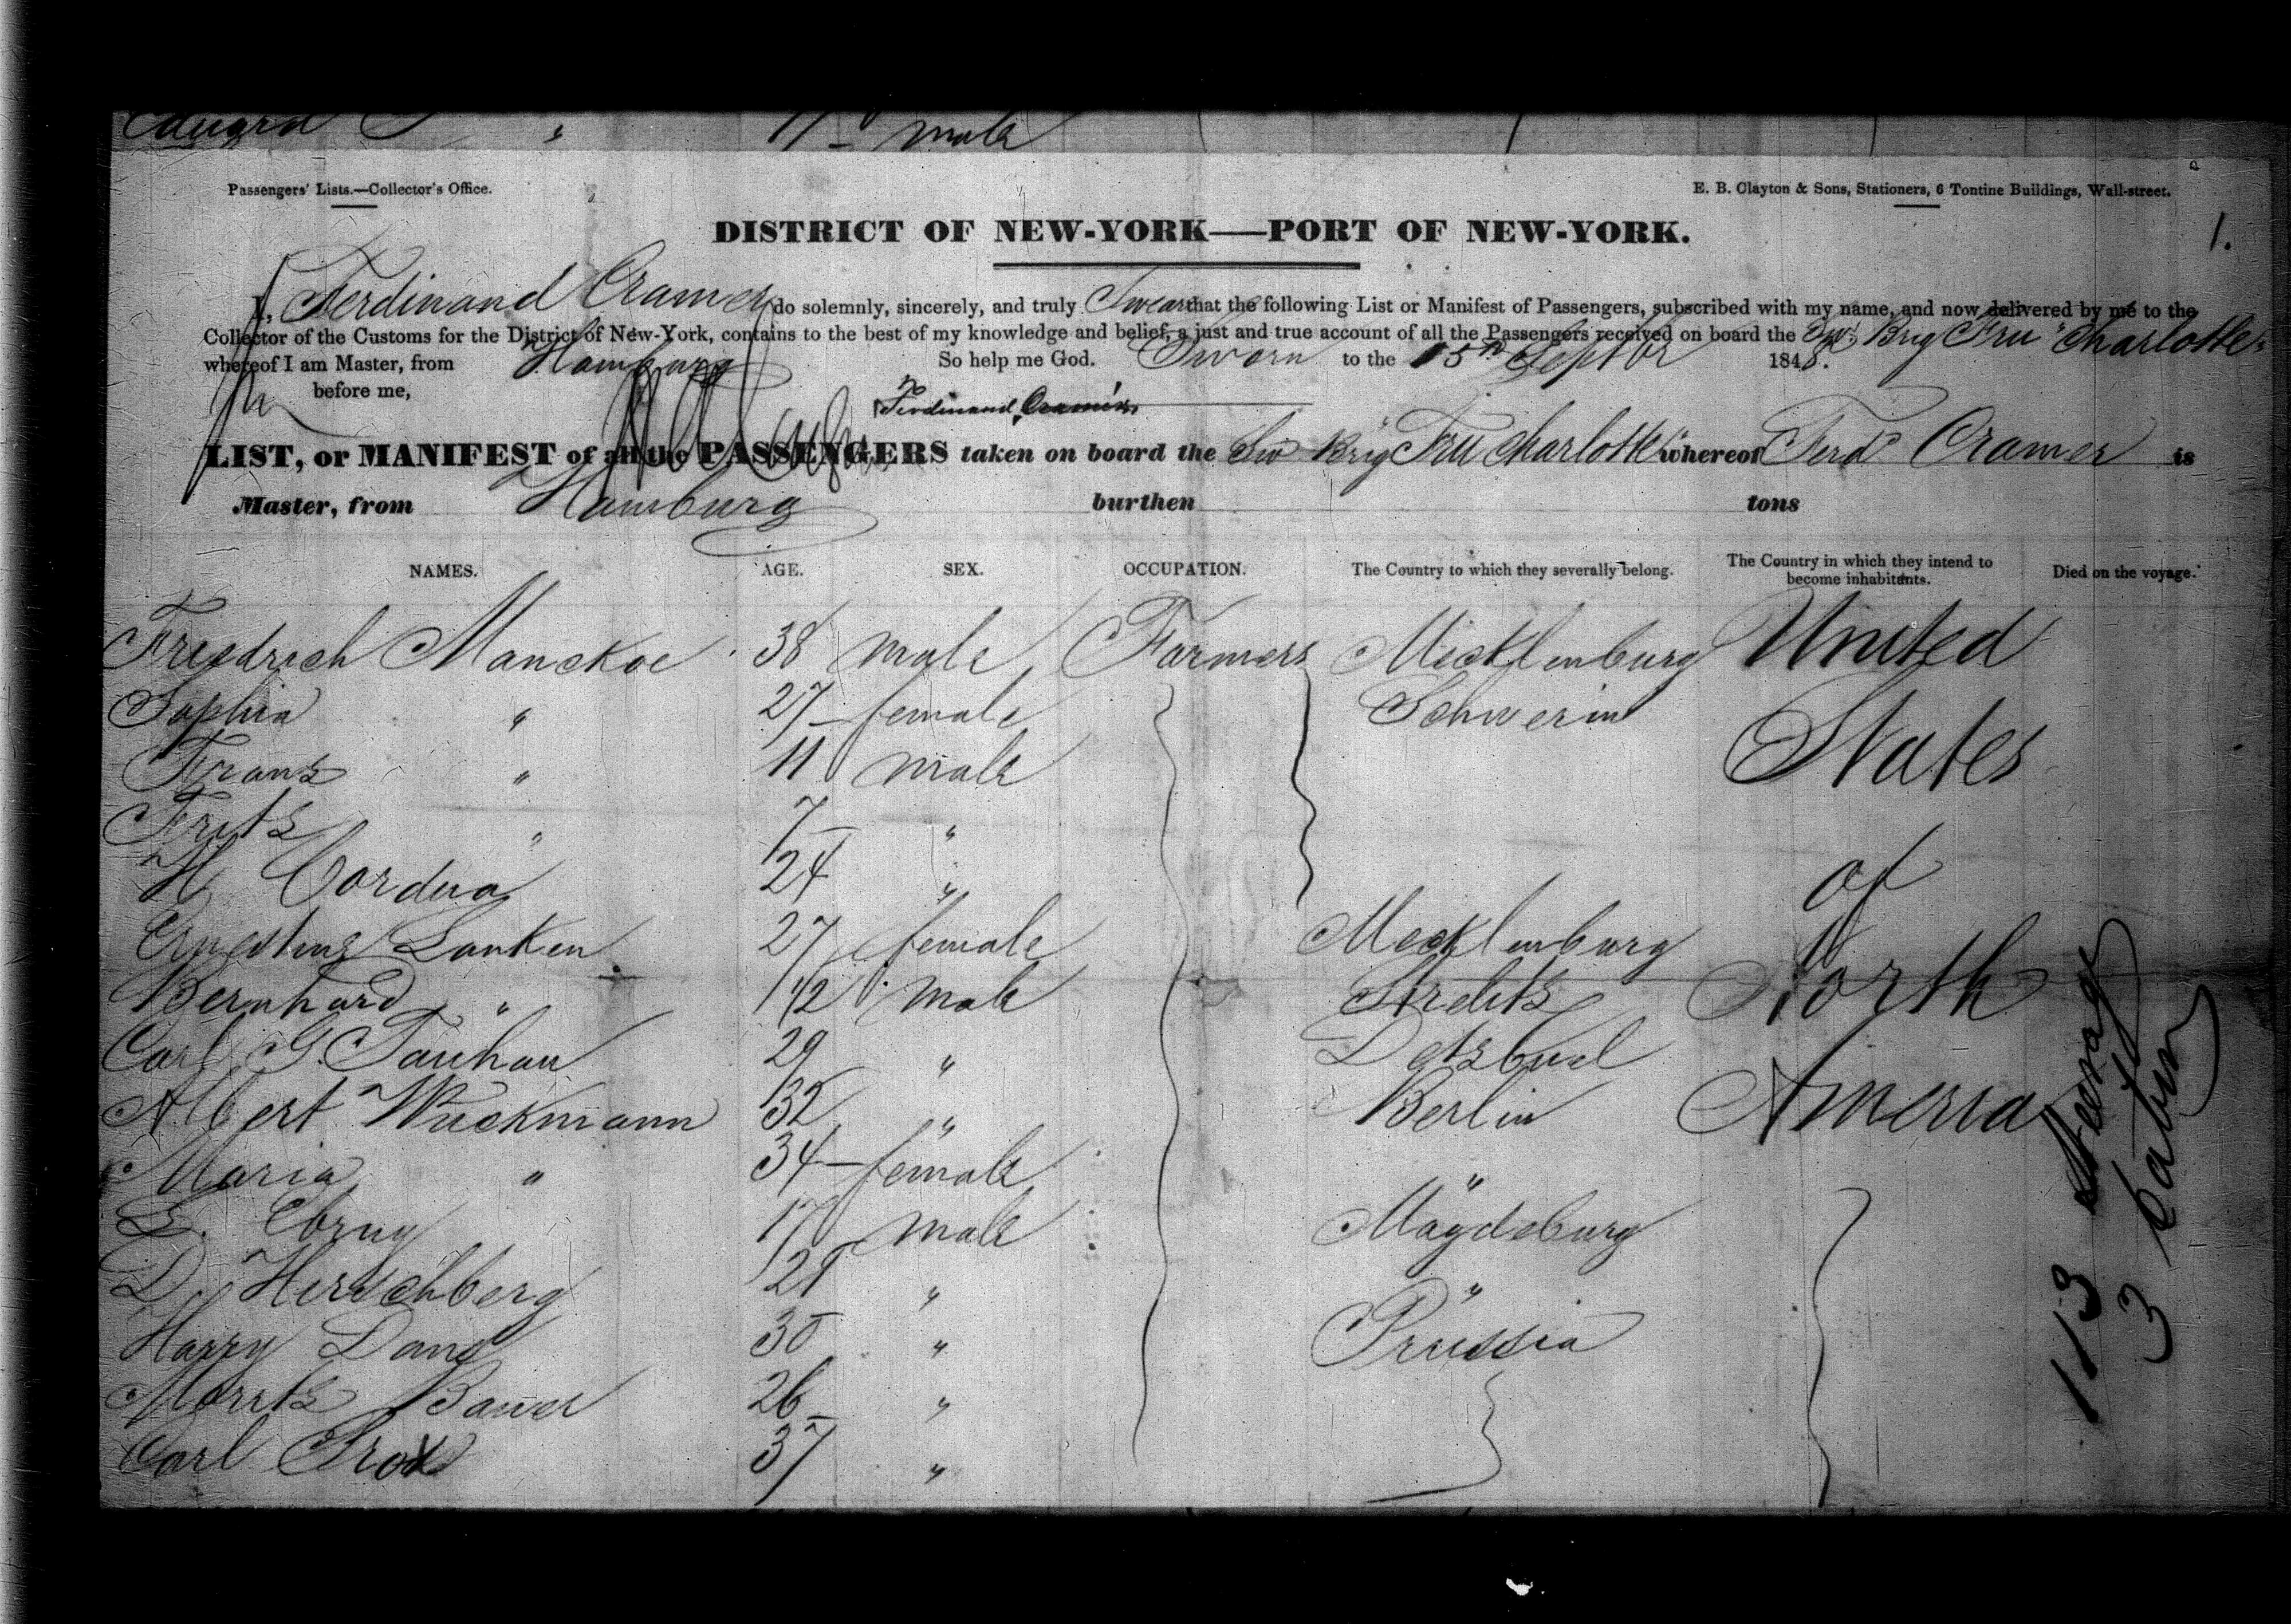 male
Passengers' Lists.—Collector's Office.
E. B. Clayton & Sons, Stationers, 6 Tontine Buildings, Wall-street.
DISTRICT OF NEW-YORK—PORT OF NEW-YORK.
1.
I, Ferdinand Cramer do solemnly, sincerely, and truly Swear that the following List or Manifest of Passengers, subscribed with my name, and now delivered by me to the
Collector of the Customs for the District of New-York, contains to the best of my knowledge and belief, a just and true account of all the Passengers received on board the Sw. Brig Fru Charlotte
whereof I am Master, from Hamburg So help me God. Sworn to the 15th Septbr 1848.
before me,
Ferdinand Cramer
LIST, or MANIFEST of all the PASSENGERS taken on board the Sw Brig "Fru Charlotte" whereof Ferd Cramer is
Master, from Hamburg burthen tons
NAMES. AGE. SEX. OCCUPATION. The Country to which they severally belong. The Country in which they intend to become inhabitants. Died on the voyage.
Friedrich Manckoe 38 male Farmers Mecklenburg United
Sophia " 27 female Schwerin States
Franz " 11 male
Fritz " 7 "
H Cordua 24 " of
Ernestine Lanken 27 female Mecklenburg North
Bernhard " 1 1/2 male Strelitz
Carl G. 29 " America
Albert Wuckmann 32 " Berlin
Maria " 34 female "
17 male Magdeburg
D. Herschberg 28 " "
Harry 30 " Prussia
Moritz Bauer 26 "
Carl 37 "
113 Steerage
3 Cabin